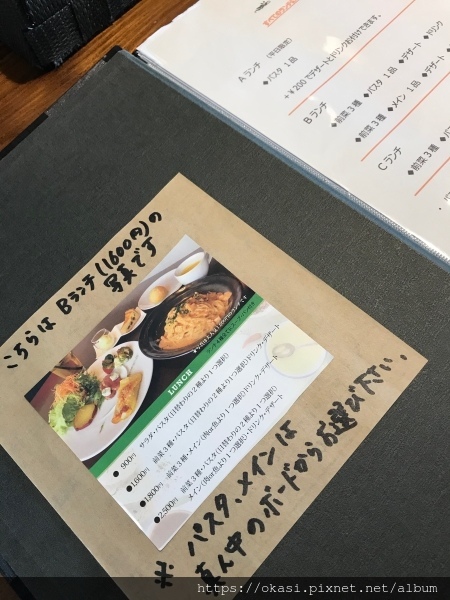 Aランチ (平日限定)
◆パスタ 1品
+¥200でデザートとドリンクお付けできます。
Bランチ
◆前菜3種 ◆パスタ 1品 ◆デザート ◆ドリンク
◆前菜3種 ◆メイン 1品 ◆デザート
Cランチ
◆前菜3種
こちらは Bランチ(1600円)の
写真です
LUNCH
●900円 サラダ・パスタ(日替わりの2種より1つ選択)
●1,600円 前菜3種・パスタ(日替わりの2種より1つ選択)ドリンク・デザート
●1,800円 前菜3種・メイン(肉or魚より1つ選択)ドリンク・デザート
●2,500円 前菜3種・パスタ(日替わりの2種より1つ選択)
メイン(肉or魚より1つ選択)・ドリンク・デザート
※ パスタ、メインは
真ん中のボードからお選び下さい。
https://okasi.pixnet.net/album